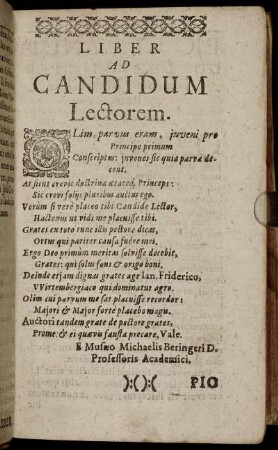 LIBER
AD
CANDIDUM
Lectorem.
OLim parvus eram, juveni pro
Principe primum
Conscriptus: juvenes sic quia parva de-
cent.
At sicut crevit doctrina ætateq́; Princeps:
Sic crevi folijs pluribus auctus ego.
Verùm si verè placeo tibi Candide Lector,
Hactenus ut vidi me placuisse tibi.
Grates ex toto tunc illi pectore dicas,
Ortus qui pariter causa fuêre mei.
Ergo Deo primùm meritas solvisse decebit,
Grates: qui solus fons & origo boni.
Deinde etiam dignas grates age Ian. Friderico,
VVirtembergiaco qui dominatur agro.
Olim cui parvum me sat placuisse recordor:
Majori & Major fortè placebo magu.
Auctori tandem grate de pectore grates,
Prome: & ei quævis fausta precare. Vale.
E Musæo Michaelis Beringeri D.
Professoris Academici.
):():(
PIO